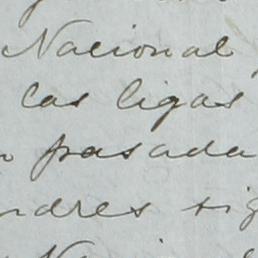 Nacional,
las ligas
pasada
ndres sig